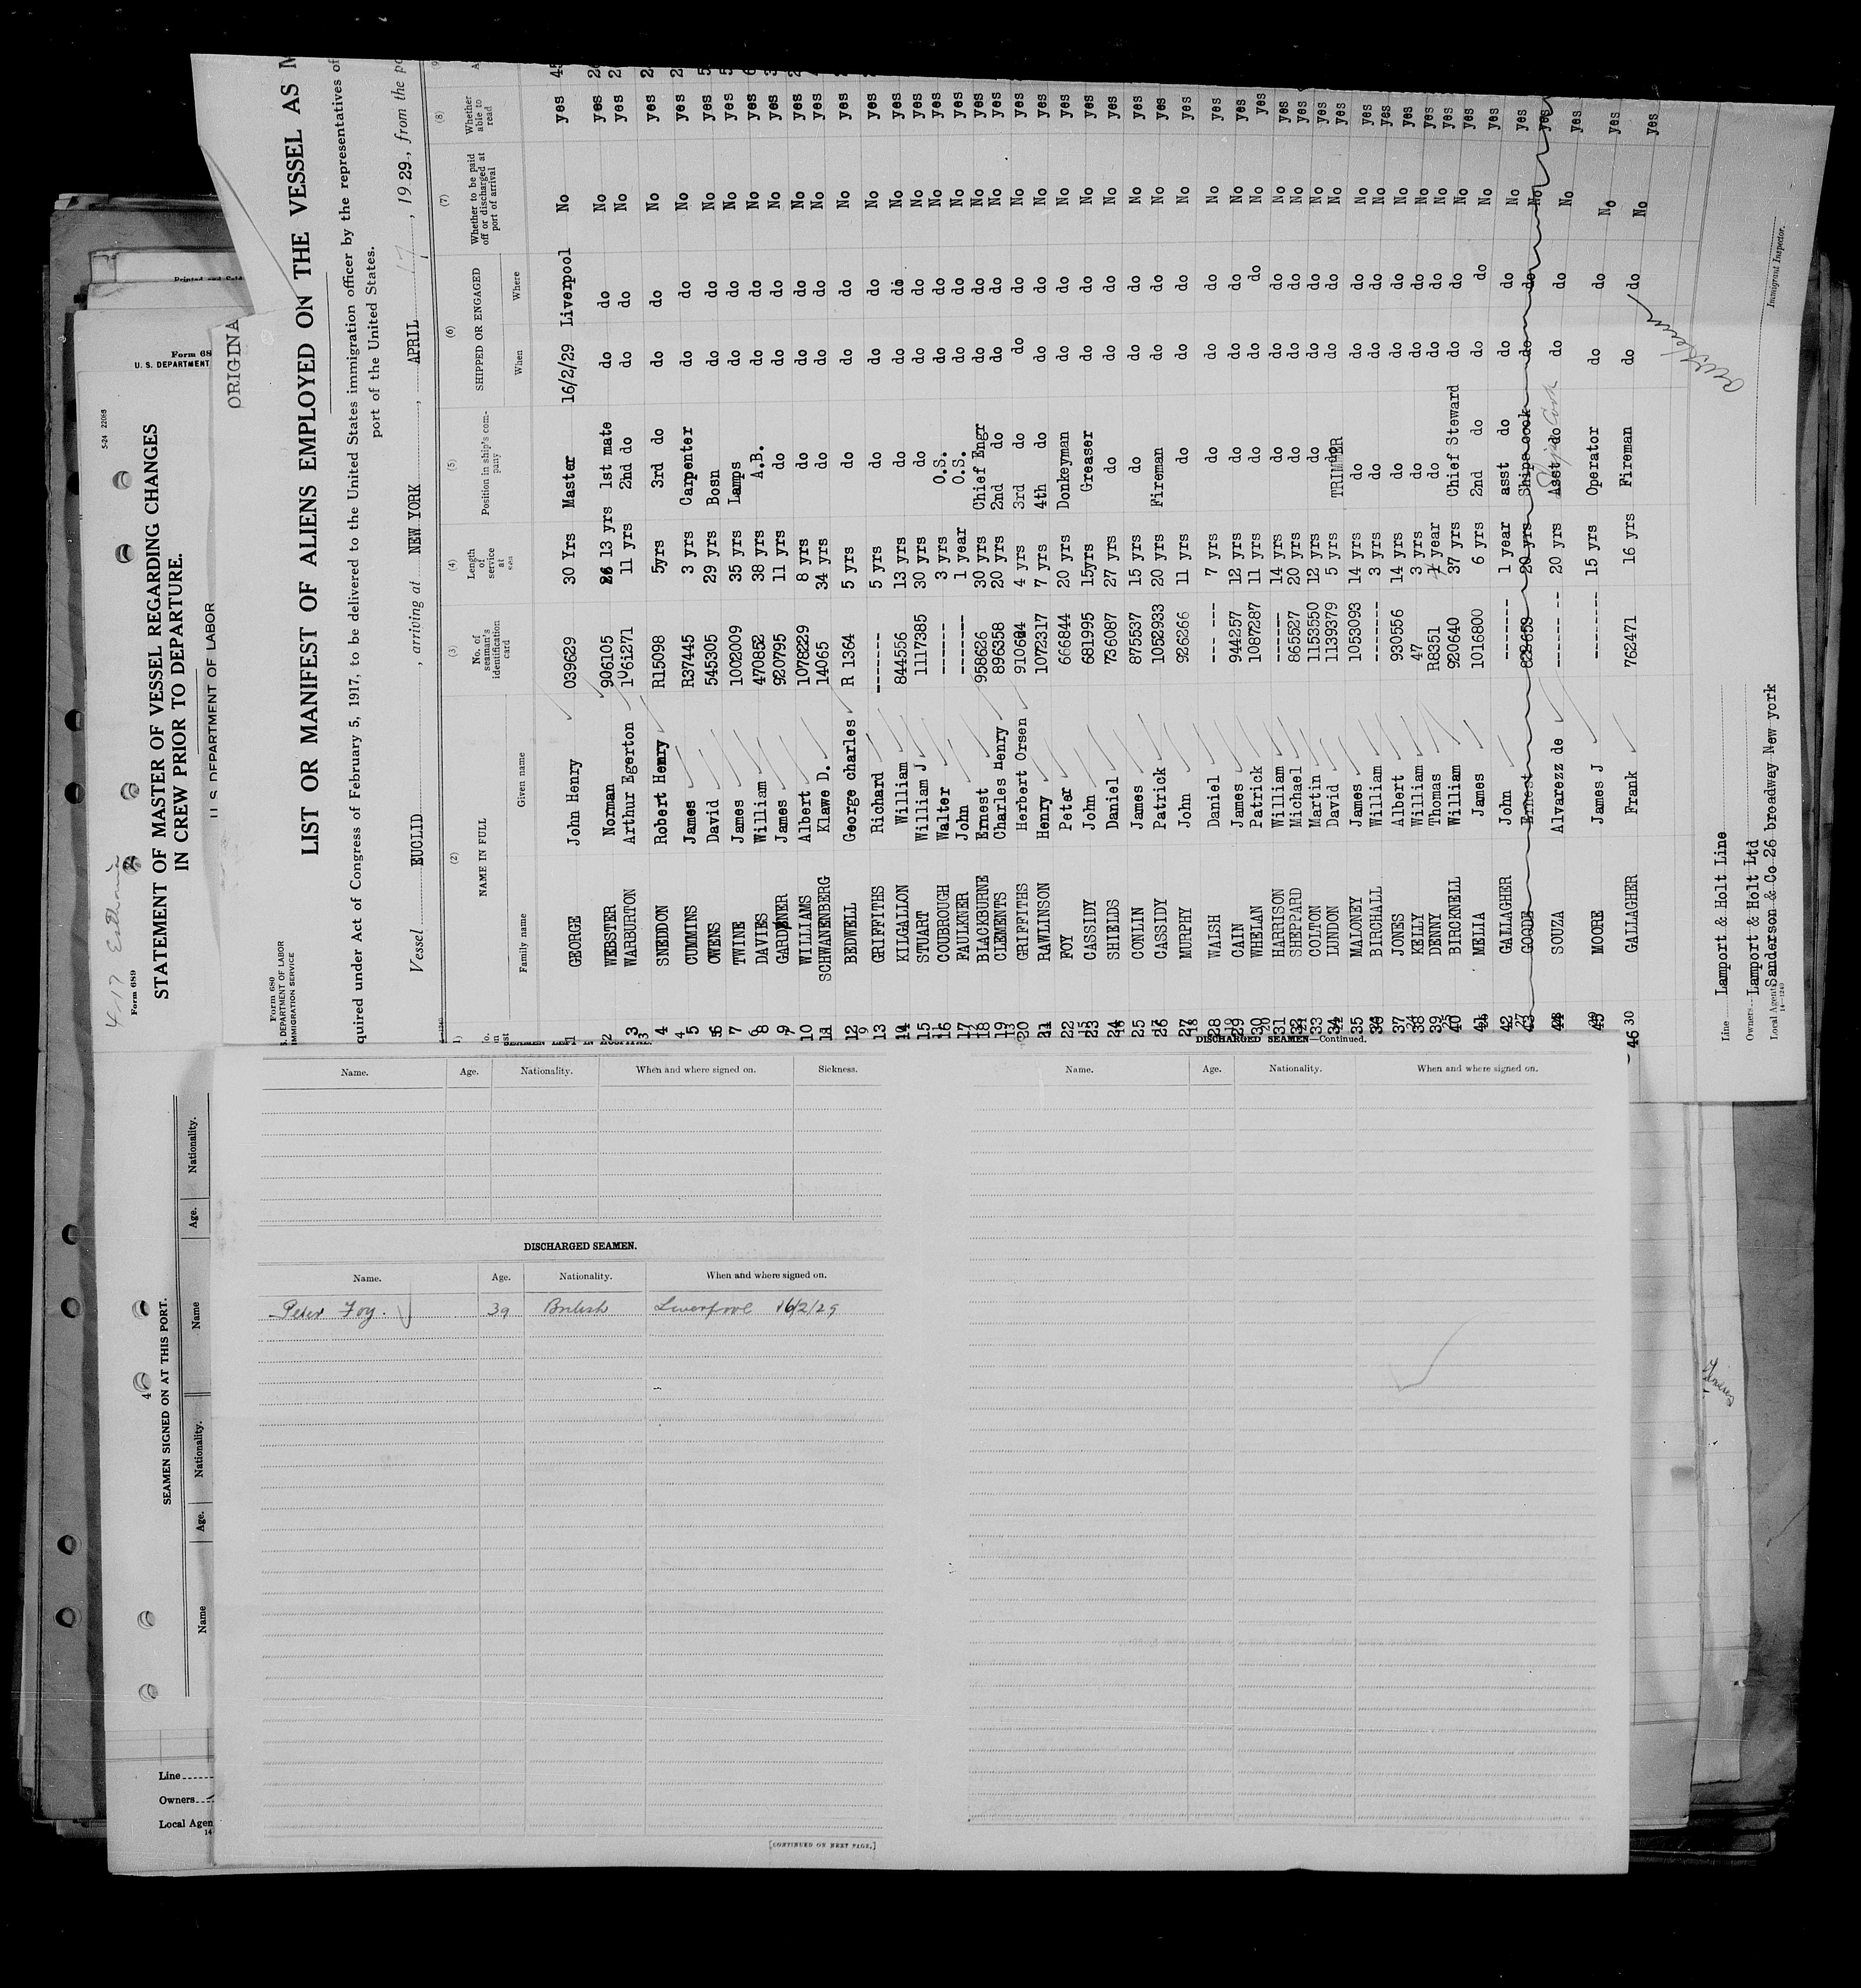 ORIGINA
Form 680
S. DEPARTMENT OF LABOR
IMMIGRATION SERVICE
LIST OR MANIFEST OF ALIENS EMPLOYED ON THE VESSEL AS M
quired under Act of Congress of February 5, 1917, to be delivered to the United States immigration officer by the representatives of
port of the United States.
Vessel EUCLID, arriving at NEW YORK, APRIL 17, 1929, from the po
(2) (3) (4) (5) (6) (7) (8)
NAME IN FULL
Family name Given name
No. of seaman's identification card
Length of service at sea
Position in ship's company
SHIPPED OR ENGAGED
When Where
Whether to be paid off or discharged at port of arrival
Whether able to read
1 GEORGE John Henry 039629 30 Yrs Master 16/2/29 Liverpool No yes
2 WEBSTER Norman 906105 13 yrs 1st mate do do No yes
3 WARBURTON Arthur Egerton 1061271 11 yrs 2nd do do do No yes
4 SNEDDON Robert Henry R15098 5yrs 3rd do do do No yes
5 CUMMINS James R37445 3 yrs Carpenter do do No yes
6 OWENS David 545305 29 yrs Bosn do do No yes
7 TWINE James 1002009 35 yrs Lamps do do No yes
8 DAVIES William 470852 38 yrs A.B. do do No yes
9 GARDNER James 920795 11 yrs do do do No yes
10 WILLIAMS Albert 1078229 8 yrs do do do No yes
11 SCHWANENBERG Klawe D. 14065 34 yrs do do do No yes
12 BEDWELL George charles R 1364 5 yrs do do do No yes
13 GRIFFITHS Richard ------- 5 yrs do do do No yes
14 KILGALLON William 844556 13 yrs do do do No yes
15 STUART William J 1117385 30 yrs do do do No yes
16 COUBROUGH Walter ------- 3 yrs O.S. do do No yes
17 FAULKNER John ------- 1 year O.S. do do No yes
18 BLACKBURNE Ernest 958626 30 yrs Chief Engr do do No yes
19 CLEMENTS Charles Henry 896358 20 yrs 2nd do do do No yes
20 GRIFFITHS Herbert Orsen 910664 4 yrs 3rd do do do No yes
21 RAWLINSON Henry 1072317 7 yrs 4th do do do No yes
22 FOY Peter 666844 20 yrs Donkeyman do do No yes
23 CASSIDY John 681995 15yrs Greaser do do No yes
24 SHIELDS Daniel 736087 27 yrs do do do No yes
25 CONLIN James 875537 15 yrs do do do No yes
26 CASSIDY Patrick 1052933 20 yrs Fireman do do No yes
27 MURPHY John 926266 11 yrs do do do No yes
28 WALSH Daniel --- --- 7 yrs do do do No yes
29 CAIN James 944257 12 yrs do do do No yes
30 WHELAN Patrick 1087287 11 yrs do do do No yes
31 HARRISON William ------ 14 yrs do do do No yes
32 SHEPPARD Michael 865527 20 yrs do do do No yes
33 COLTON Martin 1153550 12 yrs do do do No yes
34 LUNDON David 1139379 5 yrs TRIMMER do do No yes
35 MALONEY James 1053093 14 yrs do do do No yes
36 BIRCHALL William ------- 3 yrs do do do No yes
37 JONES Albert 930556 14 yrs do do do No yes
38 KELLY William 47 3 yrs do do do No yes
39 DENNY Thomas R8351 1 year do do do No yes
40 BIRCKNELL William 920640 37 yrs Chief Steward do do No yes
41 MELIA James 1016800 6 yrs 2nd do do do No yes
42 GALLAGHER John ------- 1 year asst do do do No yes
43 GOODE Ernest 828653 20 yrs Ships cook do do No yes
44 SOUZA Alvarezz de ------ -- 20 yrs Asst do do do No yes
45 MOORE James J --------- 15 yrs Operator do do No yes
46 GALLAGHER Frank 762471 16 yrs Fireman do do No yes
Line Lamport & Holt Line
Owners Lamport & Holt Ltd
Local Agents Sanderson & Co 26 broadway New york
14-1240
Immigrant Inspector.
Printed and Sold
Form 68
U. S. DEPARTMENT
5-24 2208B
4-17
Form 689
STATEMENT OF MASTER OF VESSEL REGARDING CHANGES
IN CREW PRIOR TO DEPARTURE.
U. S. DEPARTMENT OF LABOR
4
SEAMEN SIGNED ON AT THIS PORT.
Name Age. Nationality. Name Age. Nationality.
Line
Owners
Local Agen
14
SEAMEN LEFT IN HOSPITAL.
Name. Age. Nationality. When and where signed on. Sickness.
DISCHARGED SEAMEN.
Name. Age. Nationality. When and where signed on.
Peter Foy. 39 British Liverpool 16/2/29
[CONTINUED ON NEXT PAGE.]
DISCHARGED SEAMEN—Continued.
Name. Age. Nationality. When and where signed on.